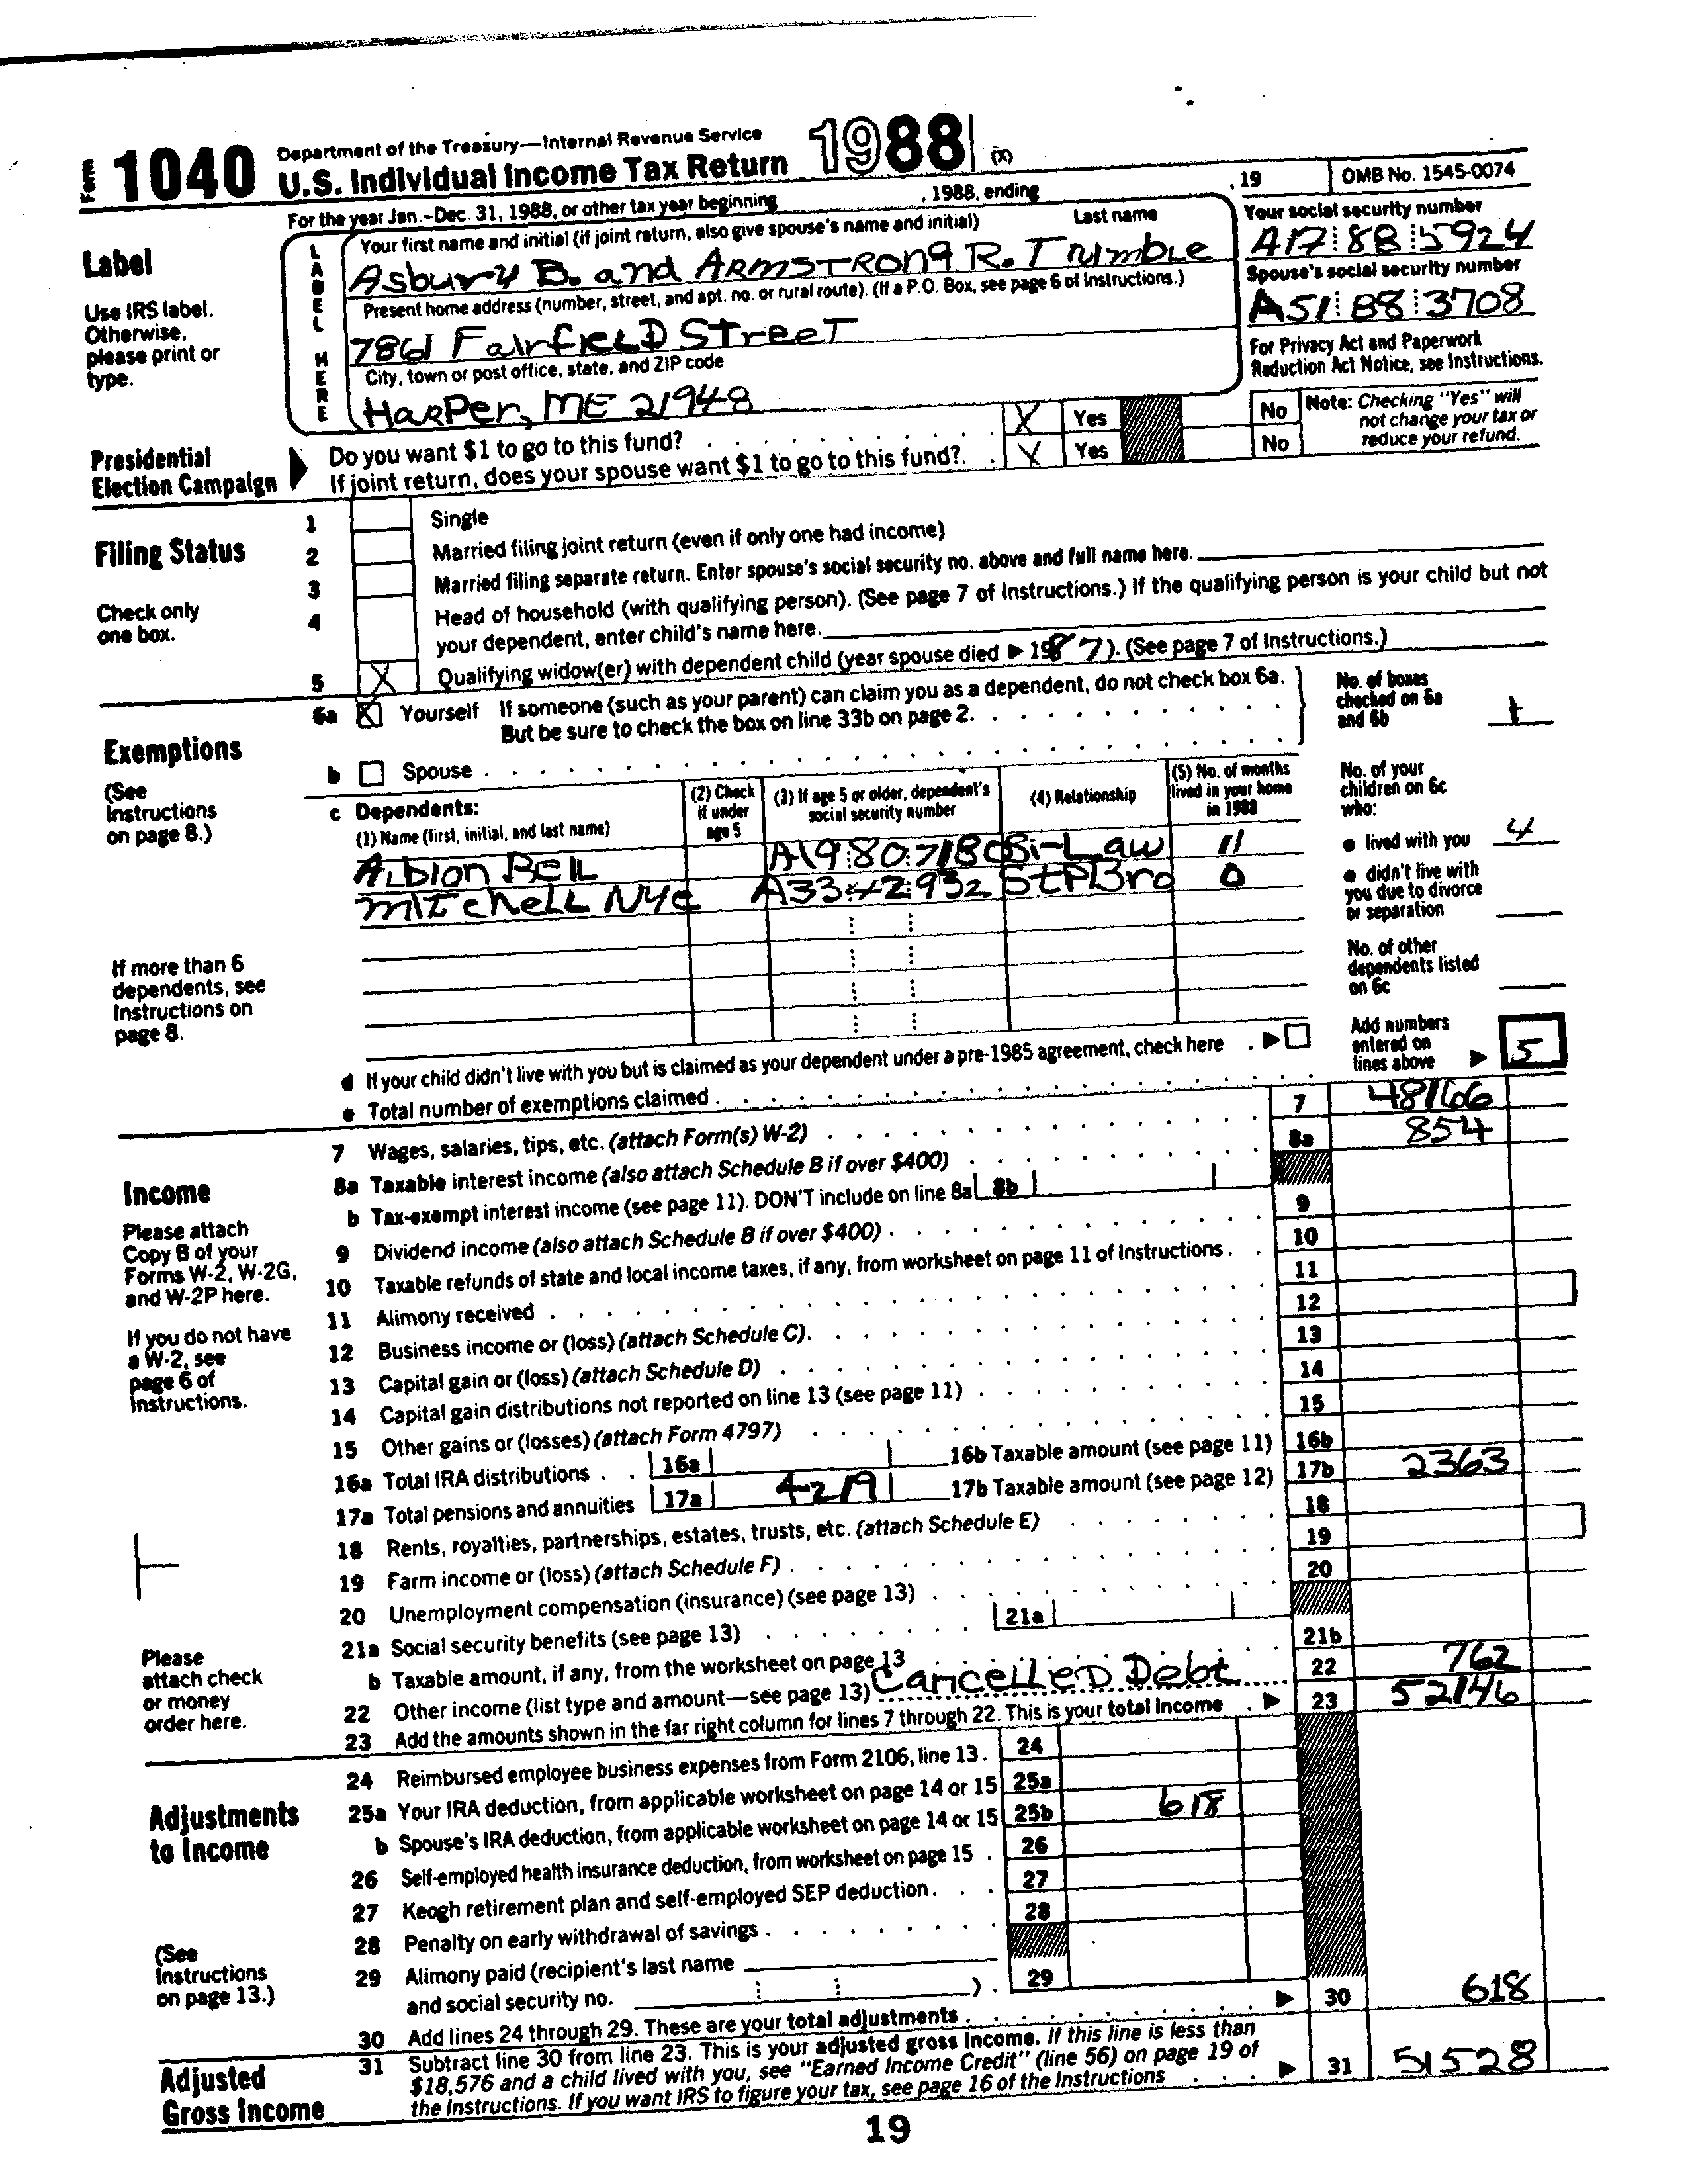 Form 1040 Department of the Treasury—Internal Revenue Service
U.S. Individual Income Tax Return 1988 (X)
For the year Jan.–Dec. 31, 1988, or other tax year beginning , 1988, ending , 19 OMB No. 1545-0074
Label
Use IRS label. Otherwise, please print or type.
LABEL HERE
Your first name and initial (if joint return, also give spouse's name and initial) Last name
Asbury B. and ARMSTRONG R. Trumble
Your social security number
A17 88 5924
Present home address (number, street, and apt. no. or rural route). (If a P.O. Box, see page 6 of Instructions.)
7861 FairfieLD Street
Spouse's social security number
A51 88 3708
City, town or post office, state, and ZIP code
HarPer, ME 21948
For Privacy Act and Paperwork Reduction Act Notice, see Instructions.
Presidential Election Campaign
Do you want $1 to go to this fund? X Yes No
If joint return, does your spouse want $1 to go to this fund? X Yes No
Note: Checking "Yes" will not change your tax or reduce your refund.
Filing Status
Check only one box.
1 Single
2 Married filing joint return (even if only one had income)
3 Married filing separate return. Enter spouse's social security no. above and full name here.
4 Head of household (with qualifying person). (See page 7 of Instructions.) If the qualifying person is your child but not
your dependent, enter child's name here.
5 X Qualifying widow(er) with dependent child (year spouse died ▶ 1987). (See page 7 of Instructions.)
Exemptions
(See Instructions on page 8.)
6a X Yourself If someone (such as your parent) can claim you as a dependent, do not check box 6a.
But be sure to check the box on line 33b on page 2.
No. of boxes checked on 6a and 6b 1
b Spouse
c Dependents:
(1) Name (first, initial, and last name) (2) Check if under age 5 (3) If age 5 or older, dependent's social security number (4) Relationship (5) No. of months lived in your home in 1988
ALbion BeLL A19 80 7180 Si-Law 11
MITcheLL Nye A33 42 932 StPBro 0
No. of your children on 6c who:
● lived with you 4
● didn't live with you due to divorce or separation
No. of other dependents listed on 6c
If more than 6 dependents, see Instructions on page 8.
d If your child didn't live with you but is claimed as your dependent under a pre-1985 agreement, check here ▶
e Total number of exemptions claimed
Add numbers entered on lines above ▶ 5
Income
Please attach Copy B of your Forms W-2, W-2G, and W-2P here.
If you do not have a W-2, see page 6 of Instructions.
Please attach check or money order here.
7 Wages, salaries, tips, etc. (attach Form(s) W-2) 7 48166
8a Taxable interest income (also attach Schedule B if over $400) 8a 854
b Tax-exempt interest income (see page 11). DON'T include on line 8a 8b
9 Dividend income (also attach Schedule B if over $400) 9
10 Taxable refunds of state and local income taxes, if any, from worksheet on page 11 of Instructions 10
11 Alimony received 11
12 Business income or (loss) (attach Schedule C) 12
13 Capital gain or (loss) (attach Schedule D) 13
14 Capital gain distributions not reported on line 13 (see page 11) 14
15 Other gains or (losses) (attach Form 4797) 15
16a Total IRA distributions 16a 16b Taxable amount (see page 11) 16b
17a Total pensions and annuities 17a 4219 17b Taxable amount (see page 12) 17b 2363
18 Rents, royalties, partnerships, estates, trusts, etc. (attach Schedule E) 18
19 Farm income or (loss) (attach Schedule F) 19
20 Unemployment compensation (insurance) (see page 13) 20
21a Social security benefits (see page 13) 21a
b Taxable amount, if any, from the worksheet on page 13 21b
22 Other income (list type and amount—see page 13) CancelleD Debt 22 762
23 Add the amounts shown in the far right column for lines 7 through 22. This is your total income ▶ 23 52146
Adjustments to Income
(See Instructions on page 13.)
24 Reimbursed employee business expenses from Form 2106, line 13. 24
25a Your IRA deduction, from applicable worksheet on page 14 or 15 25a
b Spouse's IRA deduction, from applicable worksheet on page 14 or 15 25b 618
26 Self-employed health insurance deduction, from worksheet on page 15 26
27 Keogh retirement plan and self-employed SEP deduction 27
28 Penalty on early withdrawal of savings 28
29 Alimony paid (recipient's last name
and social security no. ) 29
30 Add lines 24 through 29. These are your total adjustments ▶ 30 618
Adjusted Gross Income
31 Subtract line 30 from line 23. This is your adjusted gross income. If this line is less than
$18,576 and a child lived with you, see "Earned Income Credit" (line 56) on page 19 of
the Instructions. If you want IRS to figure your tax, see page 16 of the Instructions ▶ 31 51528
19